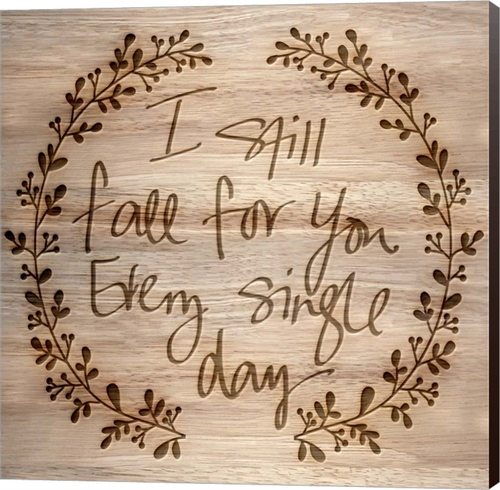 I still
fall for you
Every single
day